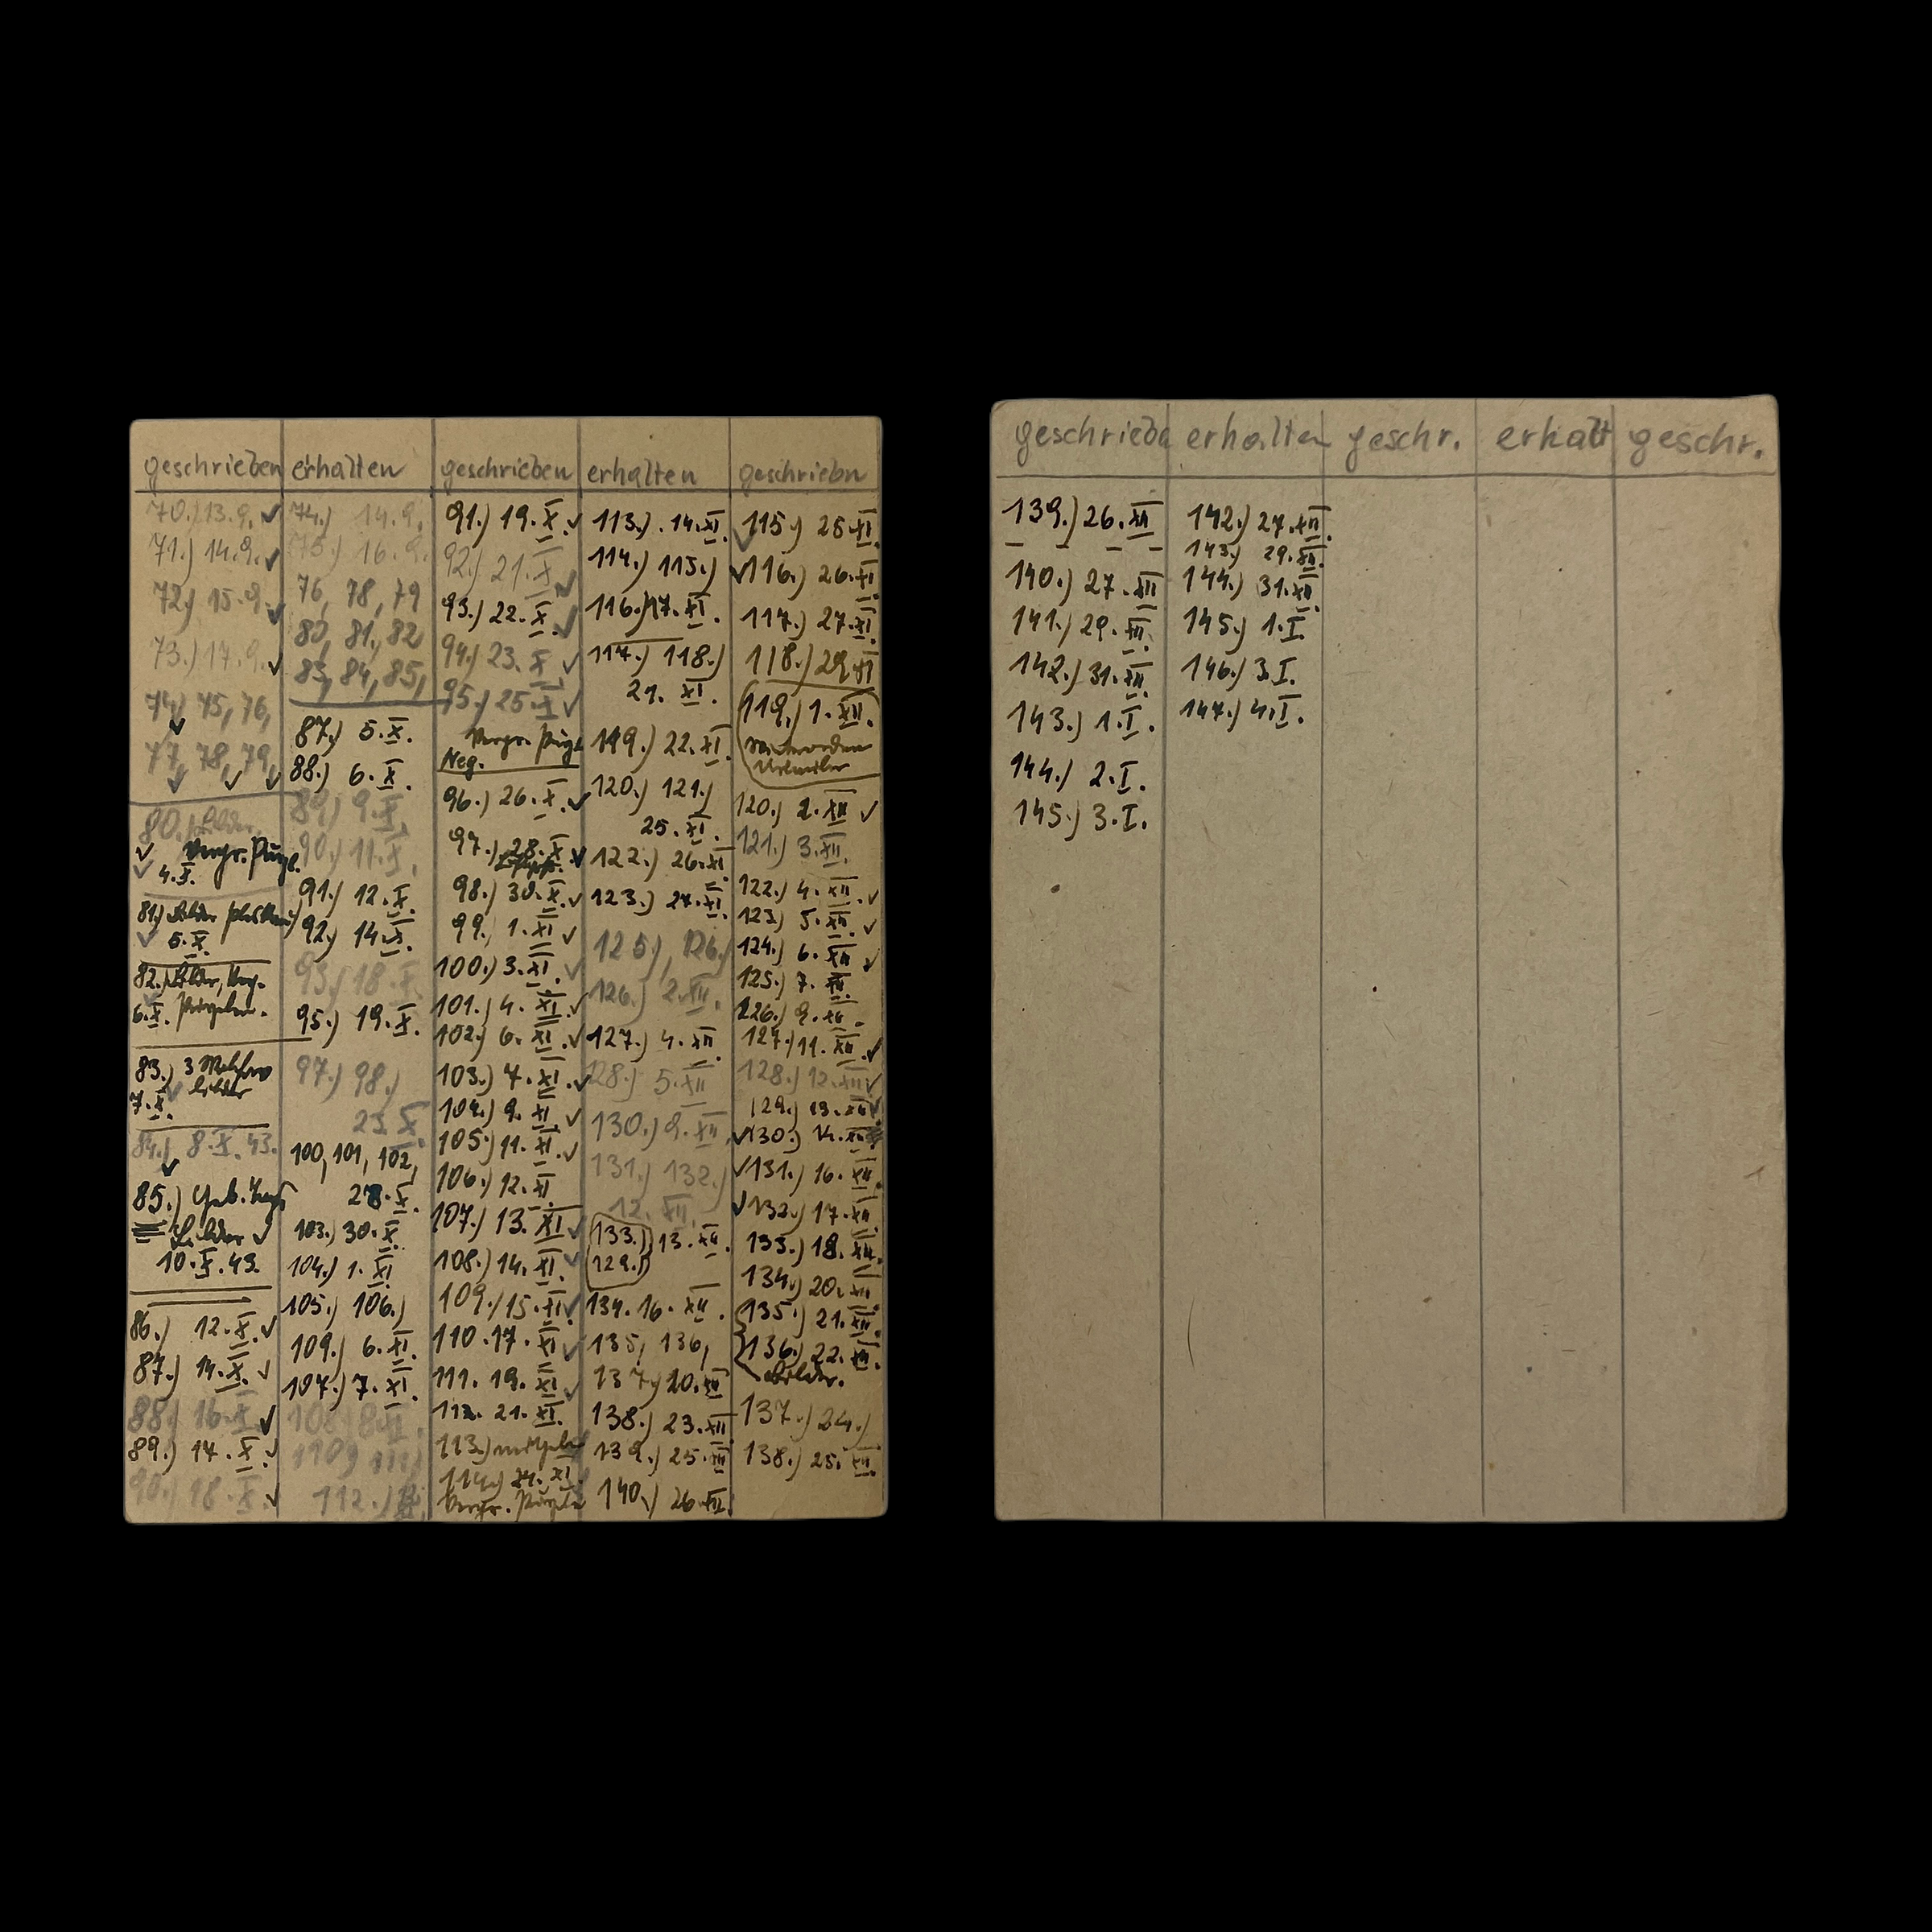 geschrieben
70.) 13.9. ✓
71.) 14.9. ✓
72.) 15.9. ✓
73.) 17.9. ✓
74.) 75, 76,
77, 78, 79,
80.) Bilder,
Vergr.
4.X.
81.) Bilder
5.X.
82.) Bilder,
6.X.
83.) 3
7.X.
84.) 8.X.43.
85.) Geb.
Bilder ✓
10.X.43.
86.) 12.X. ✓
87.) 14.X. ✓
88.) 16.X. ✓
89.) 17.X. ✓
90.) 18.X. ✓
erhalten
74.) 14.9.
75.) 16.9.
76, 78, 79
80, 81, 82
83, 84, 85,
87.) 5.X.
88.) 6.X.
89.) 9.X.
90.) 11.X.
91.) 12.X.
92.) 14.X.
93.) 18.X.
95.) 19.X.
97.) 98.)
23.X.
100, 101, 102,
28.X.
103.) 30.X.
104.) 1.XI
105.) 106.)
109.) 6.XI.
107.) 7.XI.
108.) 8.XI.
110.) 111.)
112.)
geschrieben
91.) 19.X. ✓
92.) 21.X. ✓
93.) 22.X. ✓
94.) 23.X ✓
95.) 25.X ✓
Vergr.
Neg.
96.) 26.X. ✓
97.) 28.X. ✓
98.) 30.X. ✓
99.) 1.XI ✓
100.) 3.XI. ✓
101.) 4.XI. ✓
102.) 6.XI. ✓
103.) 7.XI. ✓
104.) 9.XI. ✓
105.) 11.XI. ✓
106.) 12.XI
107.) 13.XI ✓
108.) 14.XI. ✓
109.) 15.XI. ✓
110. 17.XI ✓
111. 19.XI ✓
112. 21.XI.
113.)
114.) 24.XI.
Vergr.
erhalten
113.) 14.XI.
114.) 115.)
116.) 17.XI.
117.) 118.)
21.XI.
119.) 22.XI.
120.) 121.)
25.XI.
122.) 26.XI.
123.) 27.XI.
125.), 126.)
126.) 2.XII.
127.) 4.XII.
128.) 5.XII
130.) 9.XII.
131.) 132.)
12.XII.
133.) 13.XII.
129.)
134. 16.XII.
135, 136,
137.) 20.XII
138.) 23.XII
139.) 25.XII
140.) 26.XII.
geschriebn
115.) 25.XI.
✓ 116.) 26.XI.
117.) 27.XI.
118.) 29.XI
119.) 1.XII.
120.) 2.XII ✓
121.) 3.XII.
122.) 4.XII. ✓
123.) 5.XII. ✓
124.) 6.XII ✓
125.) 7.XII.
126.) 9.XII.
127.) 11.XII. ✓
128.) 12.XII ✓
129.) 13.XII ✓
✓ 130.) 14.XII
✓ 131.) 16.XII
✓ 132.) 17.XII.
133.) 18.XII.
134.) 20.XII.
135.) 21.XII.
136.) 22.XII.
Bilder.
137.) 24.)
138.) 25.XII.
geschriebn
139.) 26.XII
140.) 27.XII
141.) 29.XII.
142.) 31.XII
143.) 1.I.
144.) 2.I.
145.) 3.I.
erhalten
142.) 27.XII.
143.) 29.XII.
144.) 31.XII.
145.) 1.I.
146.) 3.I.
147.) 4.I.
geschr.
erhalt
geschr.